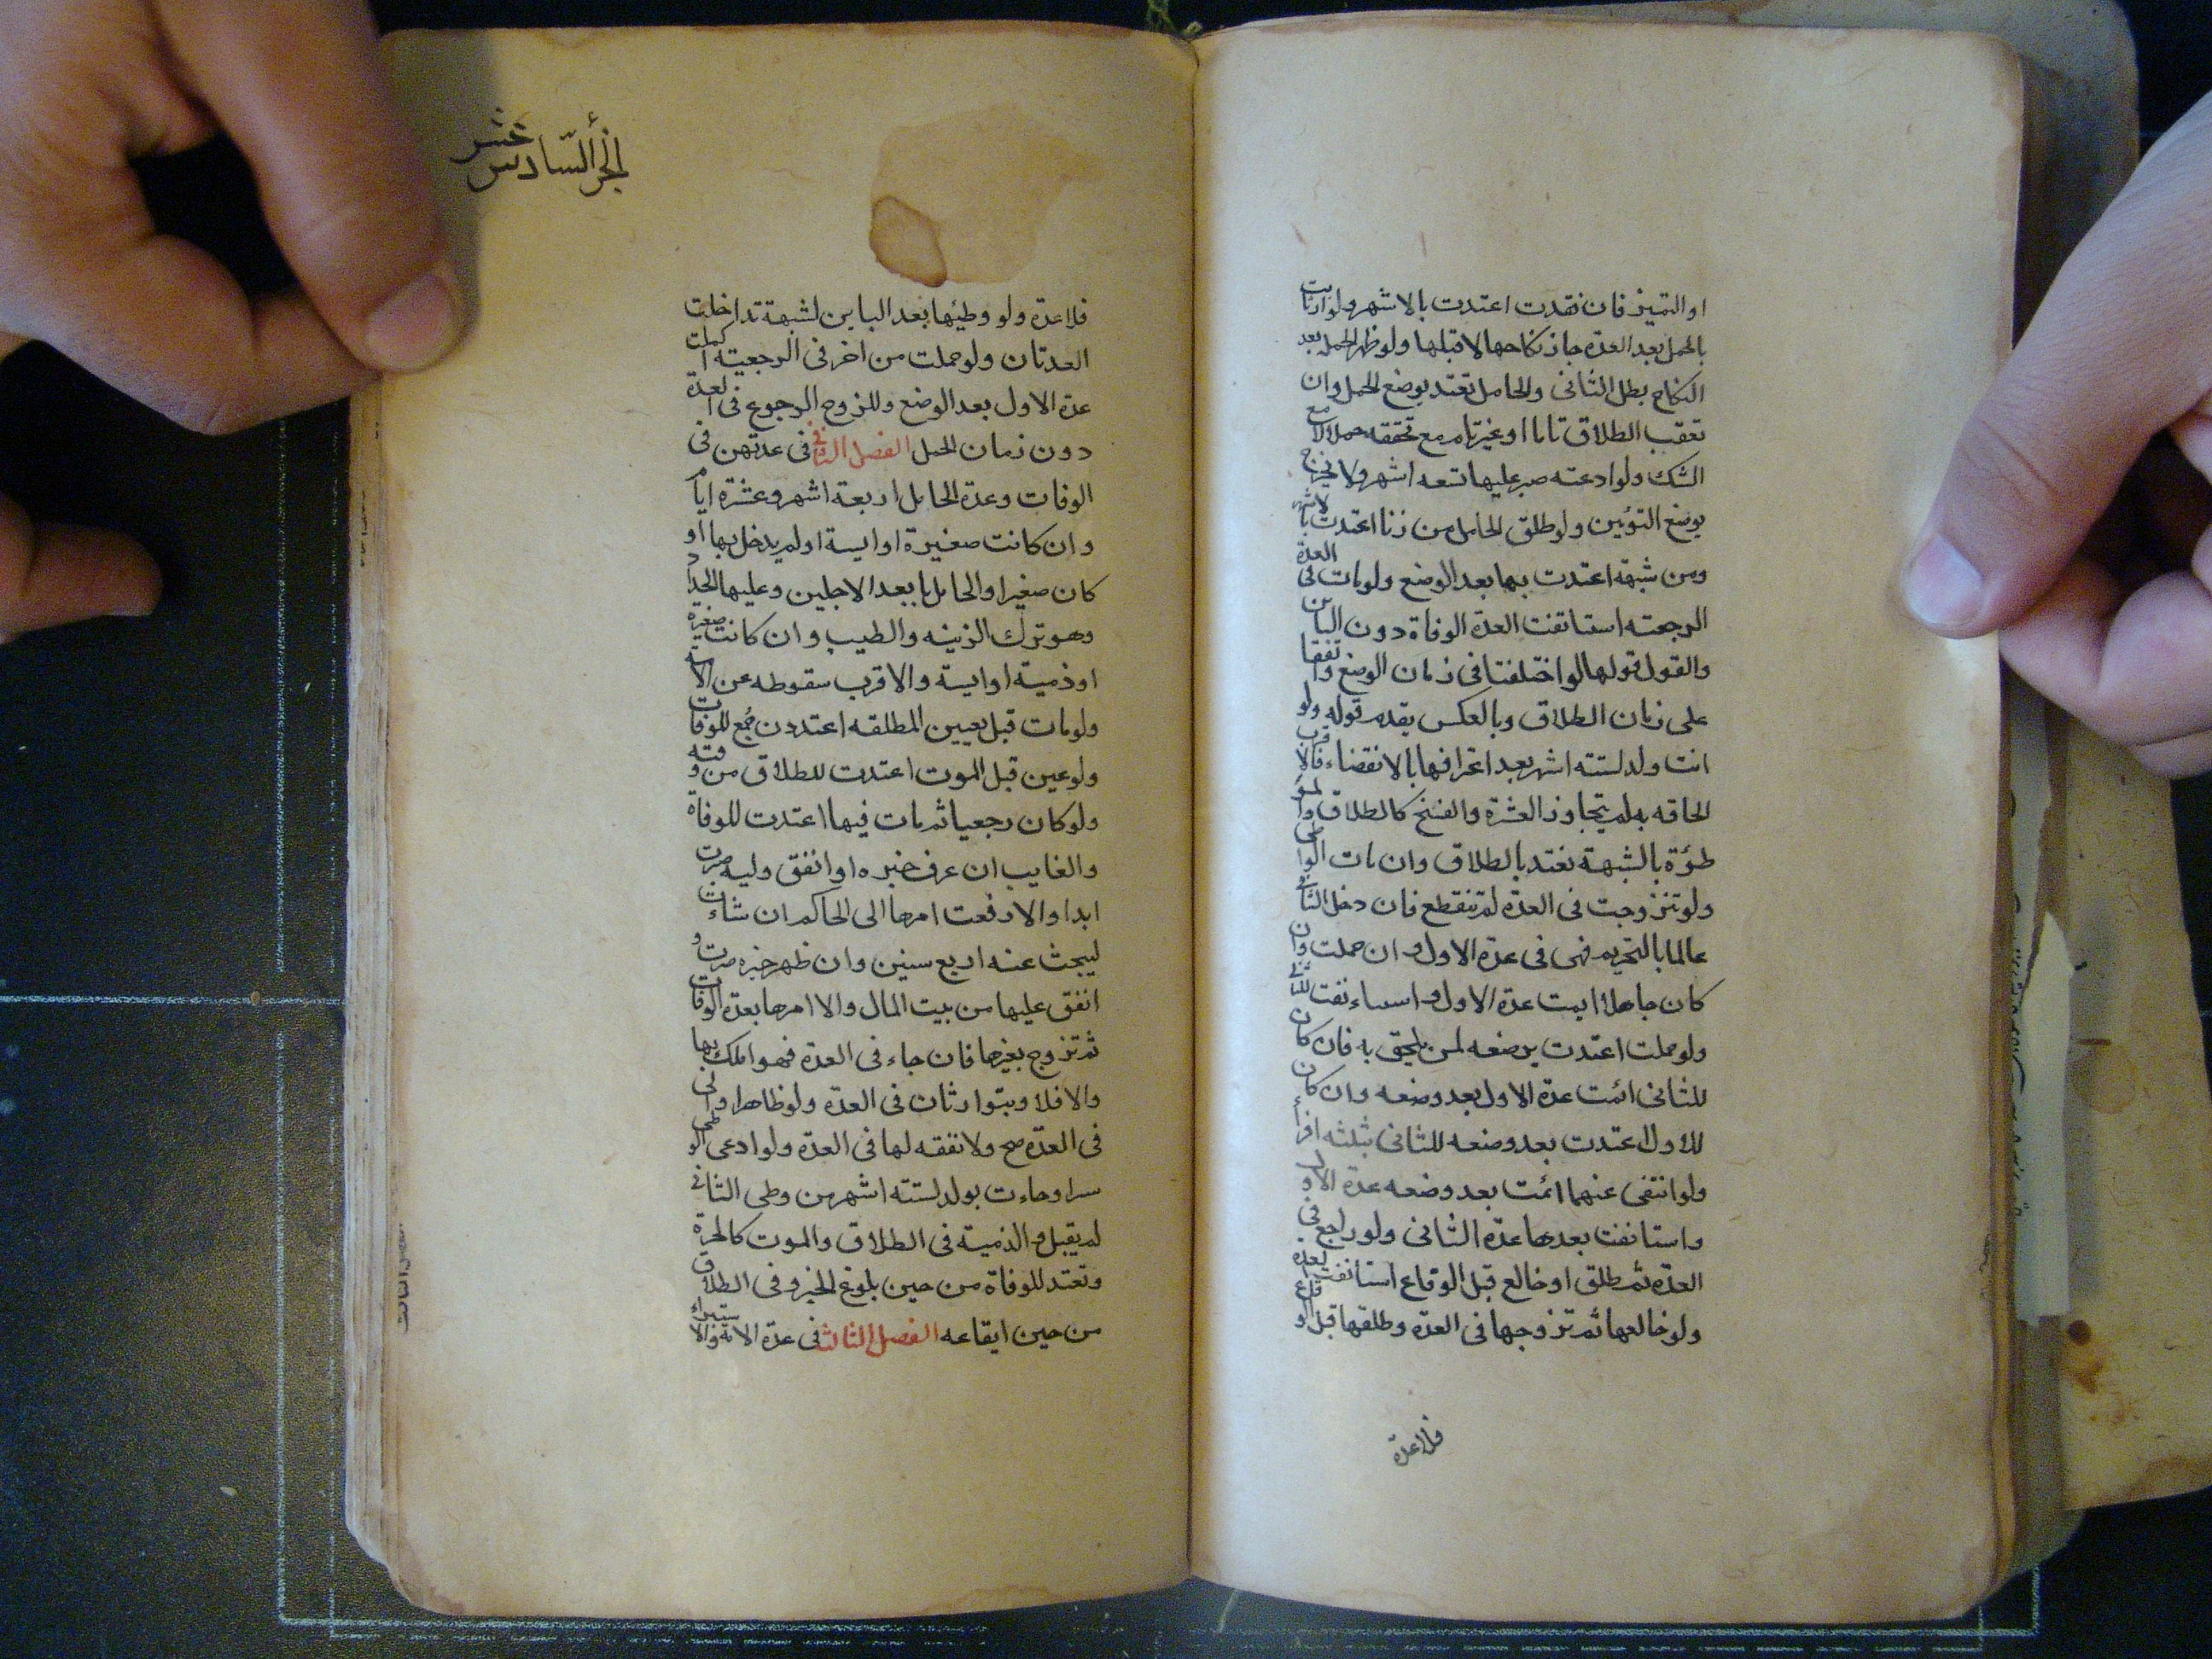 او التميز فان فقدت اعتدت بالاشهر ولو ارتابت
بالحمل بعد العدة جاز نكاحها لا قبلها ولو ظهر الحمل بعد
النكاح بطل الثانى والحامل تعتد بوضع الحمل وان
تعقب الطلاق تاما او غير تام مع تحققه حملا لا مع
الشك ولو ادعته صبر عليها تسعه اشهر ولا يخرج
بوضع التوئين ولو طلق الحامل من زنا اعتدت بالاشهر
ومن شبهة اعتدت بها بعد الوضع ولو مات فى العدة
الرجعته استانفت العدة الوفاة دون الباين
والقول قولها لو اختلفتا فى زمان الوضع واتفقا
على زمان الطلاق وبالعكس يقدم قوله ولو
اتت ولد لستته اشهر بعد اعترافها بالانقضاء فالاقرب
الحاقه به لم يتجاوز العشرة والفسخ كالطلاق والمو
طؤة بالشبهة تعتد بالطلاق وان مات الواطى
ولو تزوجت فى العدة لم تنقطع فان دخل الثانى
عالما بالتحريم فهى فى عدة الاول وان حملت وان
كان جاهلا اتمت عدة الاول واستانفت للثانى
ولو حملت اعتدت بوضعه لمن يلحق به فان كان
للثانى اتمت عدة الاول بعد وضعه وان كان
للاول اعتدت بعد وضعه للثانى بثلثه اقراء
ولو انتفى عنهما اتمت بعد وضعه عدة الاول
واستانفت بعدها عدة الثانى ولو راجع فى
العدة ثم طلق او خالع قبل الوقاع استانفت لعدة
ولو خالعها ثم تزوجها فى العدة وطلقها قبل الوقاع
فلا عدة
الجزأ السّادس عشر
فلا عدة ولو وطيئها بعد الباين لشبهة تداخلت
العدتان ولو حملت من اخر فى الرجعية اكملت
عدة الاول بعد الوضع وللزوج الرجوع فى العدة
دون زمان الحمل الفصل الثانى فى عدتهن فى
الوفات وعدة الحايل اربعة اشهر وعشرة ايام
وان كانت صغيرة او ايسة او لم يدخل بها او
كان صغيرا والحامل بابعد الاجلين وعليها الحداد
وهو ترك الزينه والطيب وان كانت صغيرة
او ذمية او ايسة والاقرب سقوطه عن الامة
ولو مات قبل تعيين المطلقه اعتددن جمع للوفات
ولو عين قبل الموت اعتدت للطلاق من وقته
ولو كان رجعيا ثم مات فيها اعتدت للوفاة
والغايب ان عرف خبره او انفق وليه صبرت
ابدا والا رفعت امرها الى الحاكم ان شاءت
ليبحث عنه اربع سنين وان ظهر خبره صبرت و
انفق عليها من بيت المال والا امرها بعدة الوفات
ثم تزوج بغيرها فان جاء فى العدة فهو املك بها
والا فلا ويتوارثان فى العدة ولو ظاهر او الى
فى العدّه صح ولا نفقه لها فى العدّة ولو ادعى الوطى
سرا وجاءت بولد لستته اشهر من وطى الثانى
لم يقبل والذمية فى الطلاق والموت كالحرة
وتعتد للوفاة من حين بلوغ الخبر وفى الطلاق
من حين ايقاعه الفصل الثالث فى عدّة الامة والاستبراء